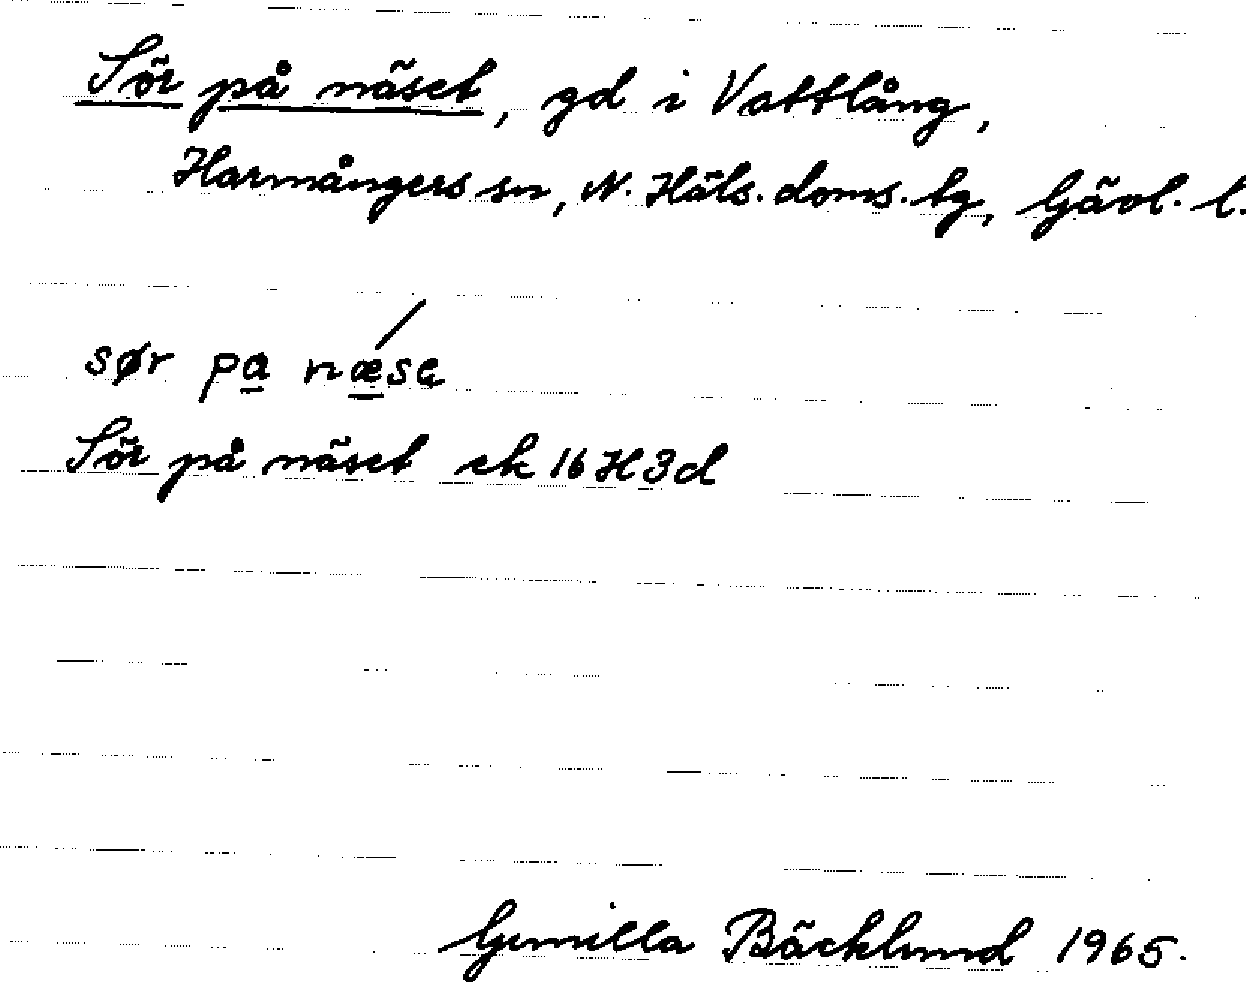 Sör på näset, gd i Vattlång,
Harmångers sn, N. Häls. doms. tg, Gävl. l.
sør pa næse
Sör på näset ek 16 H 3d
Gunilla Bäcklund 1965.